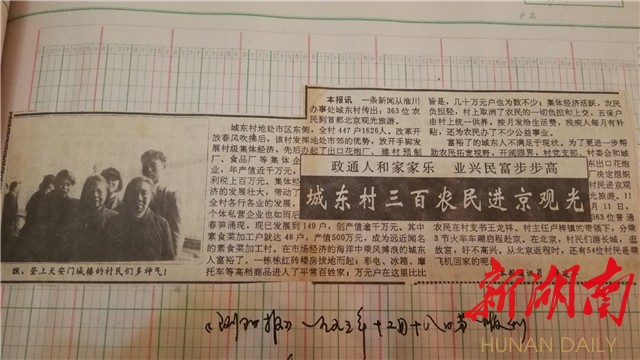 户名
本报讯 一条新闻从淮川
办事处城东村传出：363位农
民到首都北京观光旅游。
城东村地处市区东侧，全村447户1626人。改革开
放春风吹拂后，该村发挥地处市郊的优势，放开手脚发
展村级集体经济，先后办起了出口花炮厂、建材预制
厂、食品厂等集体企
业，年产值近千万元，
利税上百万元。集体经
济的发展壮大，带动了
全村各行各业的发展，
个体私营企业也如雨后
春笋涌现，现已发展到149户，创产值逾千万元。其中
素食菜加工户就达48户，产值500万元，成为远近闻名
的素食菜加工村。在市场经济的海洋中乘风搏浪的城东
人富裕了。一栋栋红砖楼房拔地而起；彩电、冰箱、摩
托车等高档商品进入了平常百姓家；万元户在这里比比
皆是，几十万元户也为数不少；集体经济活跃，农民
负担轻，村上取消了农民的一切负担和上交，五保户
由村上统一供养，按月发给生活费，残疾人每月有补
贴，还为农民办了不少公益事业。
富裕了的城东人不满足于现状，为了更进一步帮
助农民拓宽视野，开阔眼界，村党支部、
村委会和城
东出口花炮
厂决定组织
村民进京观
光旅游。11
月11日，
363位普通
农民在村支书王龙祥、村主任卢梓镇的带领下，分乘
3节火车车厢启程赴京，在北京，村民们游长城，逛
故宫，好不高兴。从北京返程时，还有54位村民是乘
飞机回家的呢！
政通人和家家乐 业兴民富步步高
城东村三百农民进京观光
瞧，登上天安门城楼的村民们多神气！
《浏阳报》一九九五年十二月十八日第一版刊
新湖南
HUNAN DAILY